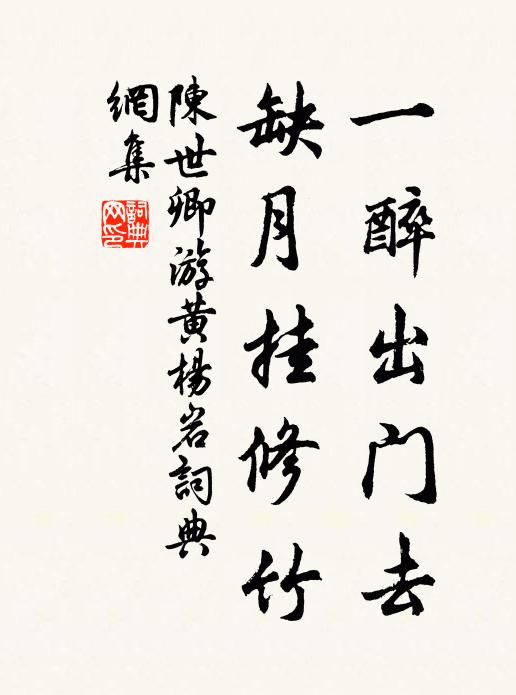 一醉出门去
缺月挂修竹
陳世卿游黄楊岩詞典
網集
詞典網印